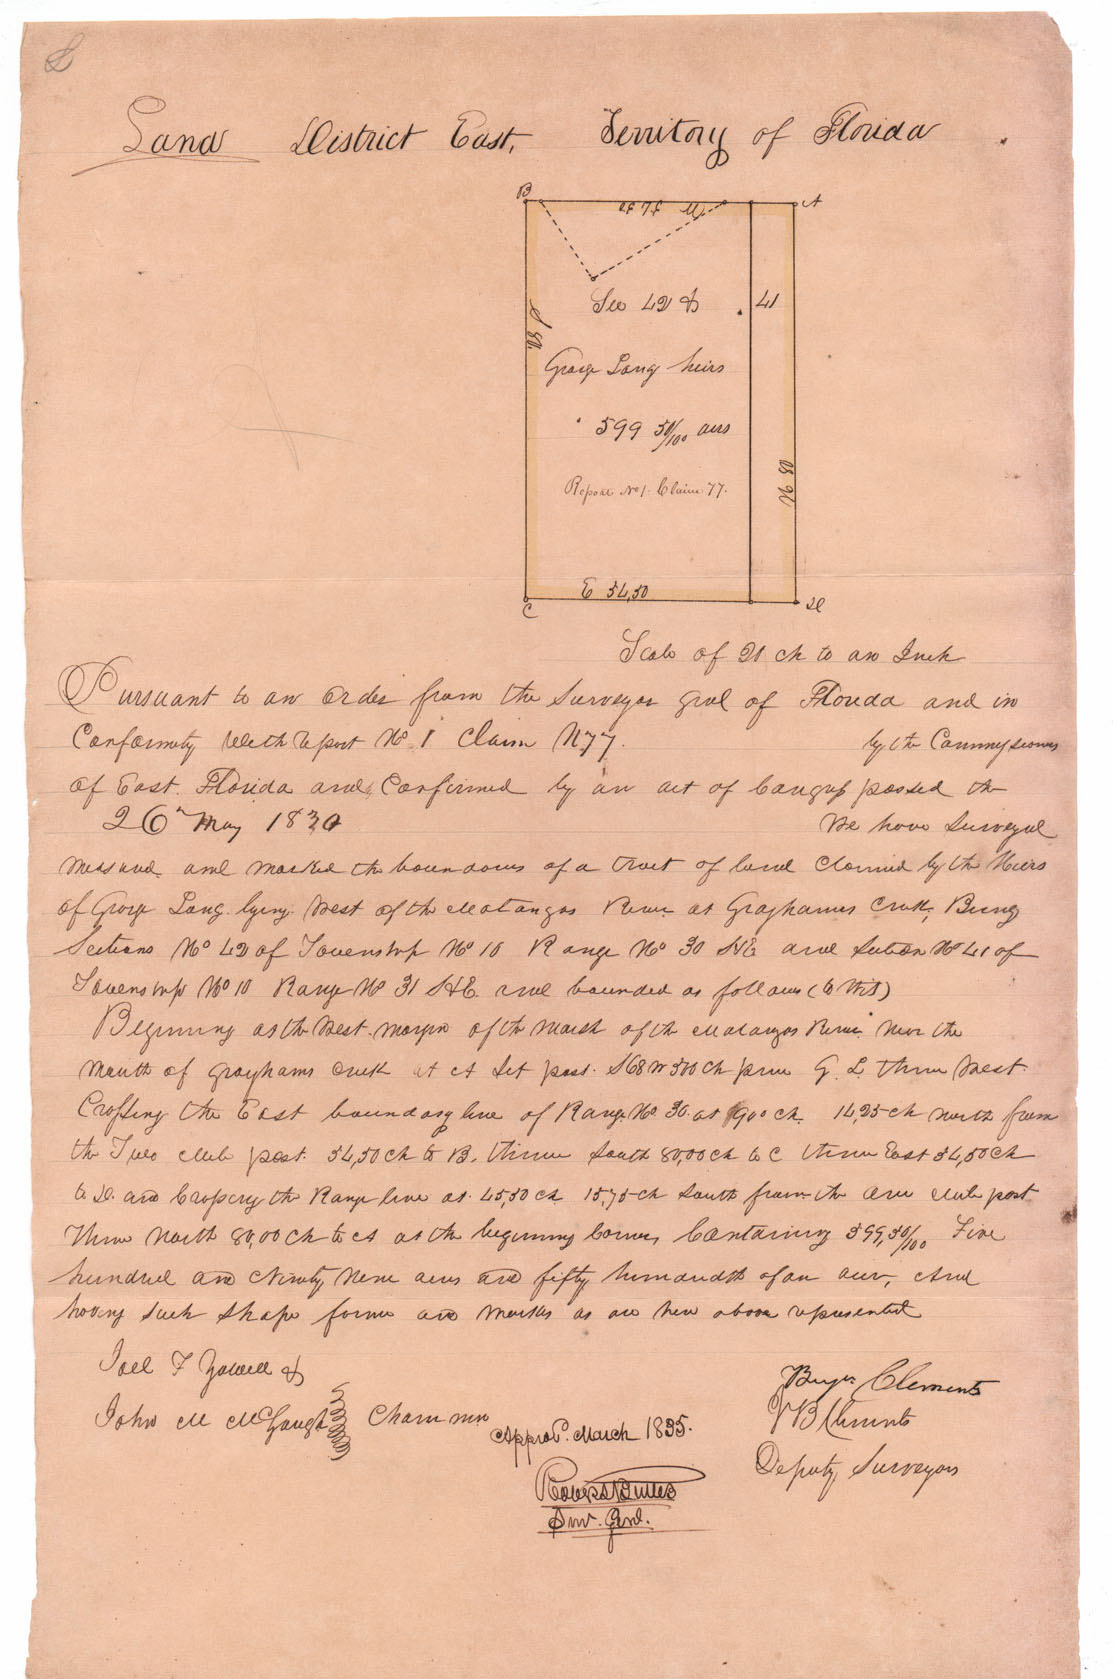 Land District East, Territory of Florida
B
A
W 54,50
S 80
Sec 42 &
41
George Long heirs
599 50/100 acrs
Report No 1. Claim 77.
N 80
E 54,50
C
D
Scale of 20 ch to an Inch
Pursuant to an order from the Surveyor Genl of Florida and in
Conformity With Report No 1 Claim N 77. by the Commissioners
of East Florida and Confirmed by an act of Congress passed the
26th May 1830 We have Surveyed
Measured and marked the boundaries of a tract of land Claimed by the Heirs
of George Long lying West of the Matanzas River at Grayhams Creek, Being
Sections No 42 of Township No 10 Range No 30 S&E and Section No 41 of
Township No 10 Range No 31 S&E. and bounded as follows (to Wit)
Beginning at the West margin of the Marsh of the Matanzas River near the
Mouth of Grayhams Creek at A Set post. S68W 300 ch pine G. L thence West
Crossing the East boundary line of Range No 30. at 900 ch. 14,25 ch north from
the Two Mile post. 54,50 ch to B. thence South 80,00 ch to C thence East 54,50 ch
to D. and Crossing the Range line at 45,50 ch 15,75 ch South from the One Mile post
thence North 80,00 ch to A at the beginning Corner, Containing 599,50/100 Five
hundred and Ninety Nine acres and fifty hundredth of an acre, And
having such shape forme and marks as are here above represented
Joel F Yowell &
John M McGaugh Chainmen
Benjn Clements
J B Clements
Deputy Surveyors
Approd. March 1835.
Robert Butler
Surv. Genl.